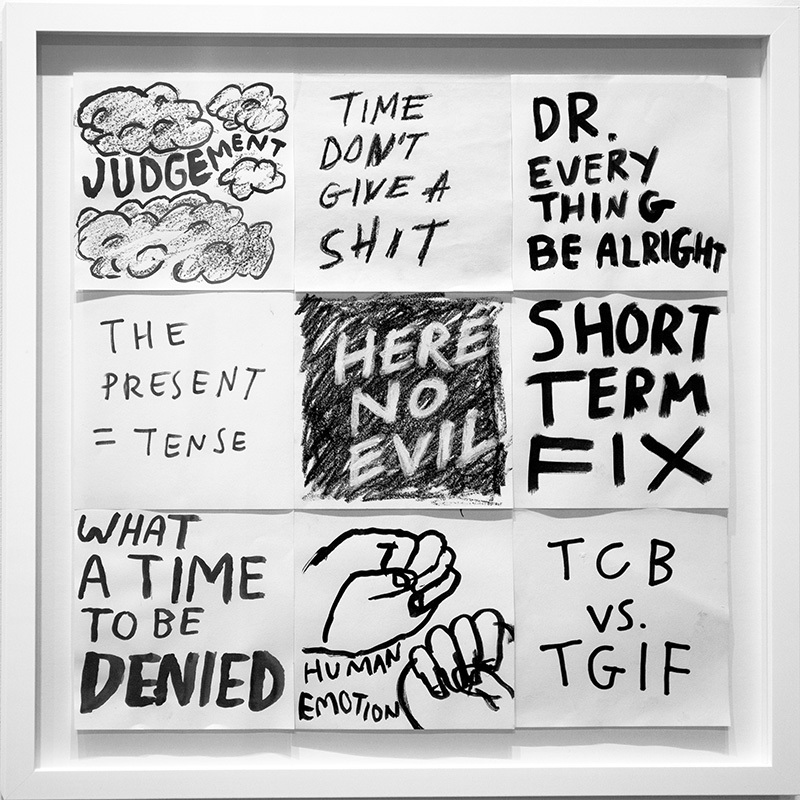 JUDGEMENT
TIME
DON'T
GIVE A
SHIT
DR.
EVERY
THING
BE ALRIGHT
THE
PRESENT
= TENSE
HERE
NO
EVIL
SHORT
TERM
FIX
WHAT
A TIME
TO BE
DENIED
HUMAN
EMOTION
TCB
VS.
TGIF